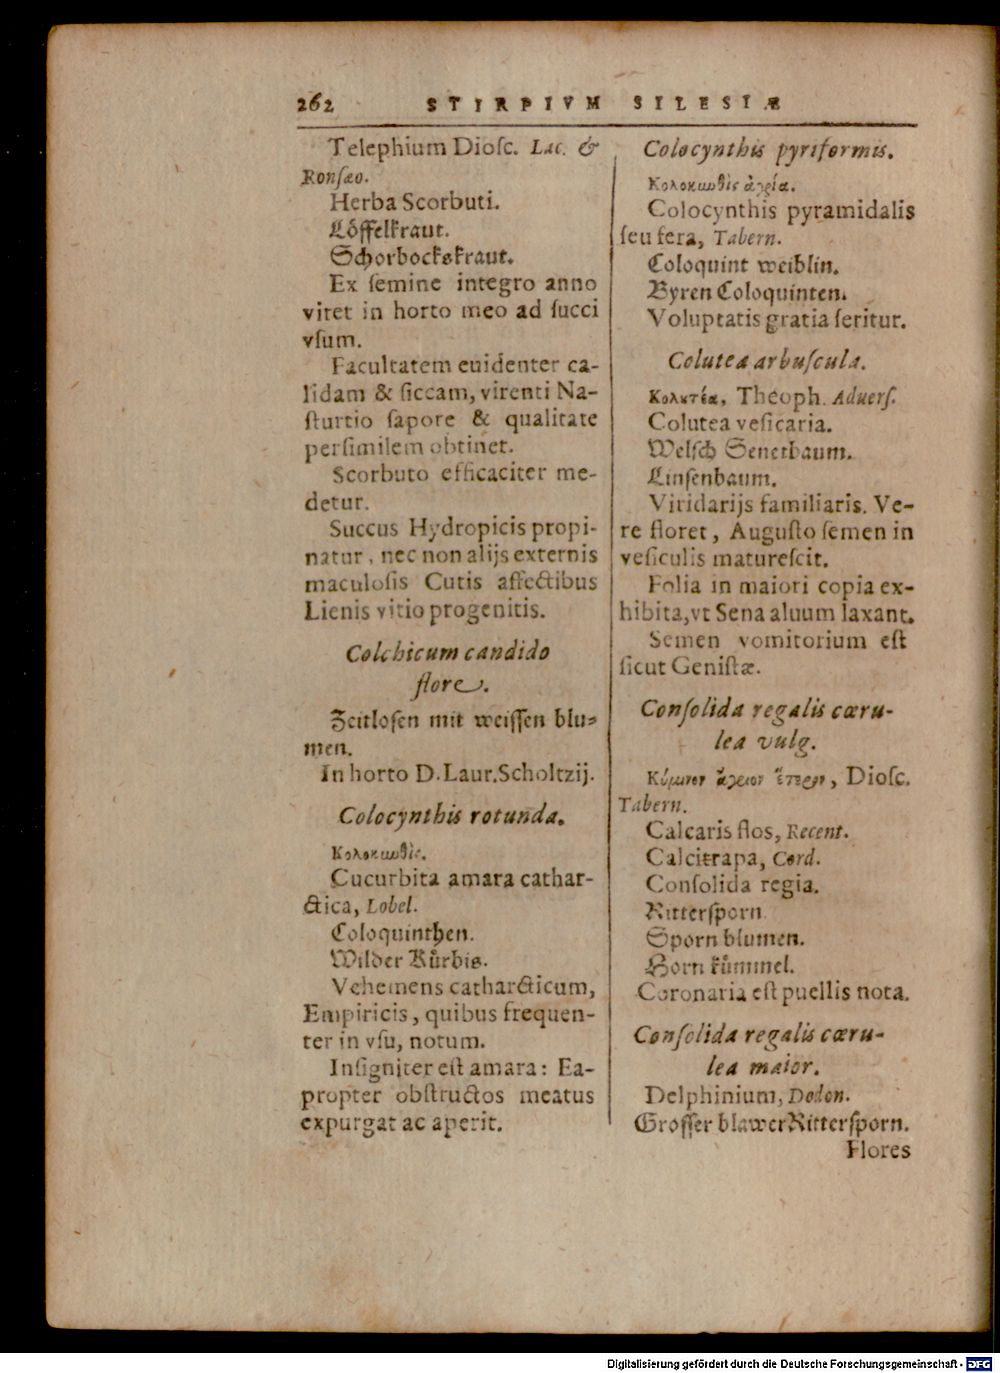 262 STIRPIVM SILESIÆ
Telephium Dioſc. Lac. &
Ronſæo.
Herba Scorbuti.
Löffelkraut.
Schorbockskraut.
Ex ſemine integro anno
viret in horto meo ad ſucci
vſum.
Facultatem euidenter ca-
lidam & ſiccam, virenti Na-
ſturtio ſapore & qualitate
perſimilem obtinet.
Scorbuto efficaciter me-
detur.
Succus Hydropicis propi-
natur, nec non alijs externis
maculoſis Cutis affectibus
Lienis vitio progenitis.
Colchicum candido
flore.
Zeitloſen mit weiſſen blu-
men.
In horto D. Laur. Scholtzij.
Colocynthis rotunda.
Κολοκυνθὶς.
Cucurbita amara cathar-
ctica, Lobel.
Coloquinthen.
Wilder Kuͤrbis.
Vehemens catharcticum,
Empiricis, quibus frequen-
ter in vſu, notum.
Inſigniter eſt amara: Ea-
propter obſtructos meatus
expurgat ac aperit.
Colocynthis pyriformis.
Κολοκυνθὶς ἀγρία.
Colocynthis pyramidalis
ſeu fera, Tabern.
Coloquint weiblin.
Byren Coloquinten.
Voluptatis gratia ſeritur.
Colutea arbuſcula.
Κολυτέα, Theoph. Aduerſ.
Colutea veſicaria.
Welſch Senetbaum.
Linſenbaum.
Viridarijs familiaris. Ve-
re floret, Auguſto ſemen in
veſiculis matureſcit.
Folia in maiori copia ex-
hibita, vt Sena aluum laxant.
Semen vomitorium eſt
ſicut Geniſtæ.
Conſolida regalis cœru-
lea vulg.
Κύμινον ἄγριον ἕτερον, Dioſc.
Tabern.
Calcaris flos, Recent.
Calcitrapa, Cord.
Conſolida regia.
Ritterſporn
Sporn blumen.
Horn kuͤmmel.
Coronaria eſt puellis nota.
Conſolida regalis cœru-
lea maior.
Delphinium, Dodon.
Groſſer blawer Ritterſporn.
Flores
Digitalisierung gefördert durch die Deutsche Forschungsgemeinschaft - DFG